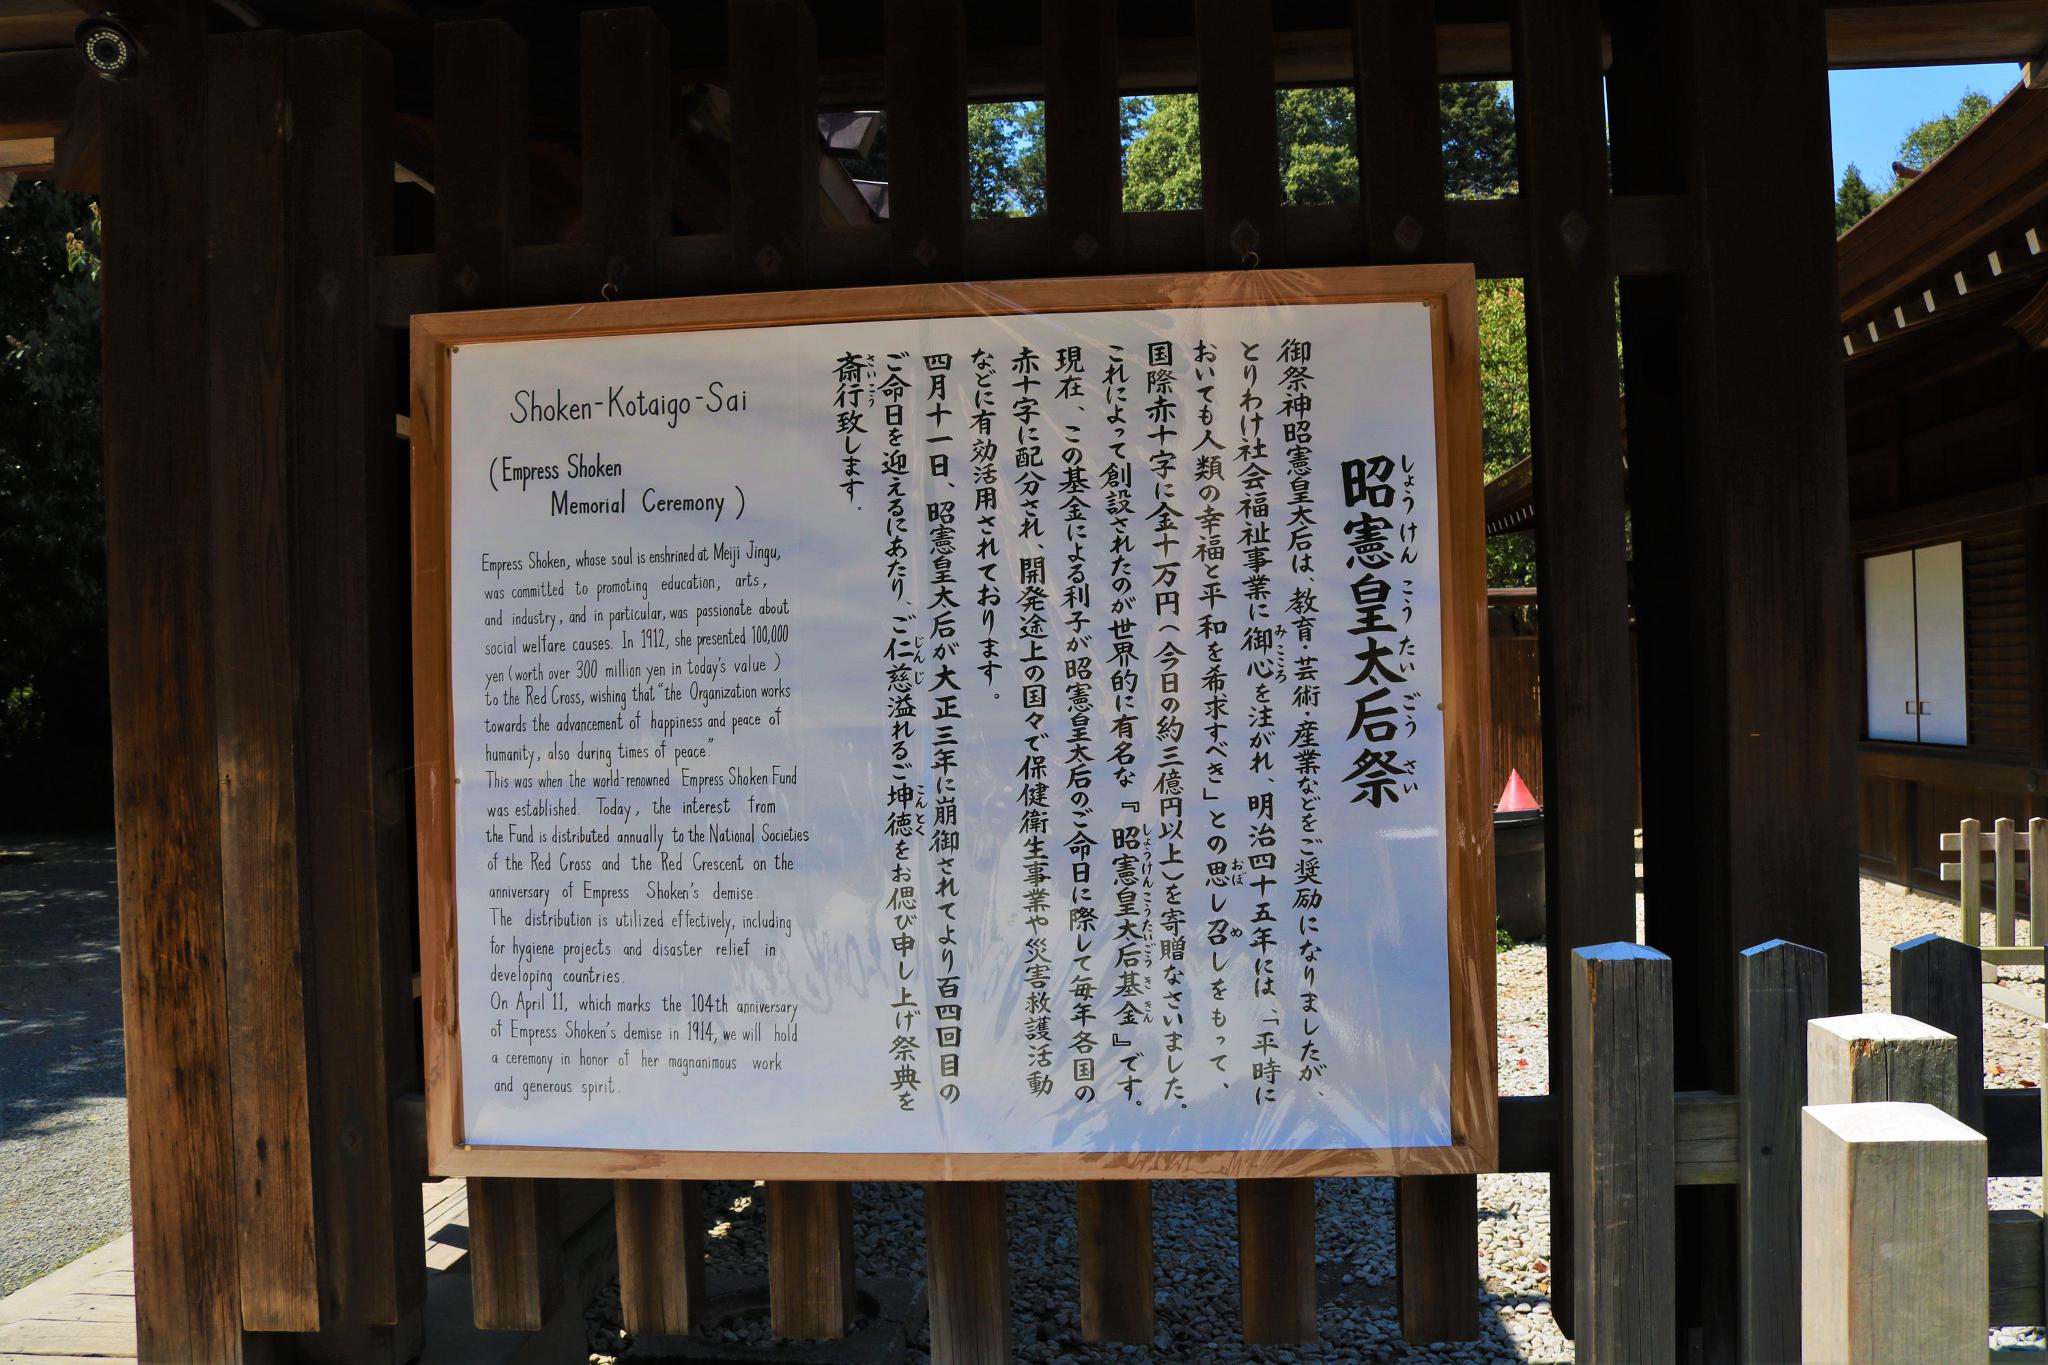 昭憲皇太后祭
しょうけんこうたいごうさい
御祭神昭憲皇太后は、教育・芸術・産業などをご奨励になりましたが、
とりわけ社会福祉事業に御心を注がれ、明治四十五年には、「平時に
みこころ
おいても人類の幸福と平和を希求すべき」との思し召しをもって、
おぼ
め
国際赤十字に金十万円(今日の約三億円以上)を寄贈なさいました。
これによって創設されたのが世界的に有名な『昭憲皇太后基金』です。
しょうけんこうたいごうききん
現在、この基金による利子が昭憲皇太后のご命日に際して毎年各国の
赤十字に配分され、開発途上の国々で保健衛生事業や災害救護活動
などに有効活用されております。
四月十一日、昭憲皇太后が大正三年に崩御されてより百四回目の
ご命日を迎えるにあたり、ご仁慈溢れるご坤徳をお偲び申し上げ祭典を
じんじ
こんとく
斎行致します。
さいこう
Shoken-Kotaigo-Sai
(Empress Shoken
Memorial Ceremony)
Empress Shoken, whose soul is enshrined at Meiji Jingu,
was committed to promoting education, arts,
and industry, and in particular, was passionate about
social welfare causes. In 1912, she presented 100,000
yen (worth over 300 million yen in today's value)
to the Red Cross, wishing that "the Organization works
towards the advancement of happiness and peace of
humanity, also during times of peace."
This was when the world-renowned Empress Shoken Fund
was established. Today, the interest from
the Fund is distributed annually to the National Societies
of the Red Cross and the Red Crescent on the
anniversary of Empress Shoken's demise.
The distribution is utilized effectively, including
for hygiene projects and disaster relief in
developing countries.
On April 11, which marks the 104th anniversary
of Empress Shoken's demise in 1914, we will hold
a ceremony in honor of her magnanimous work
and generous spirit.